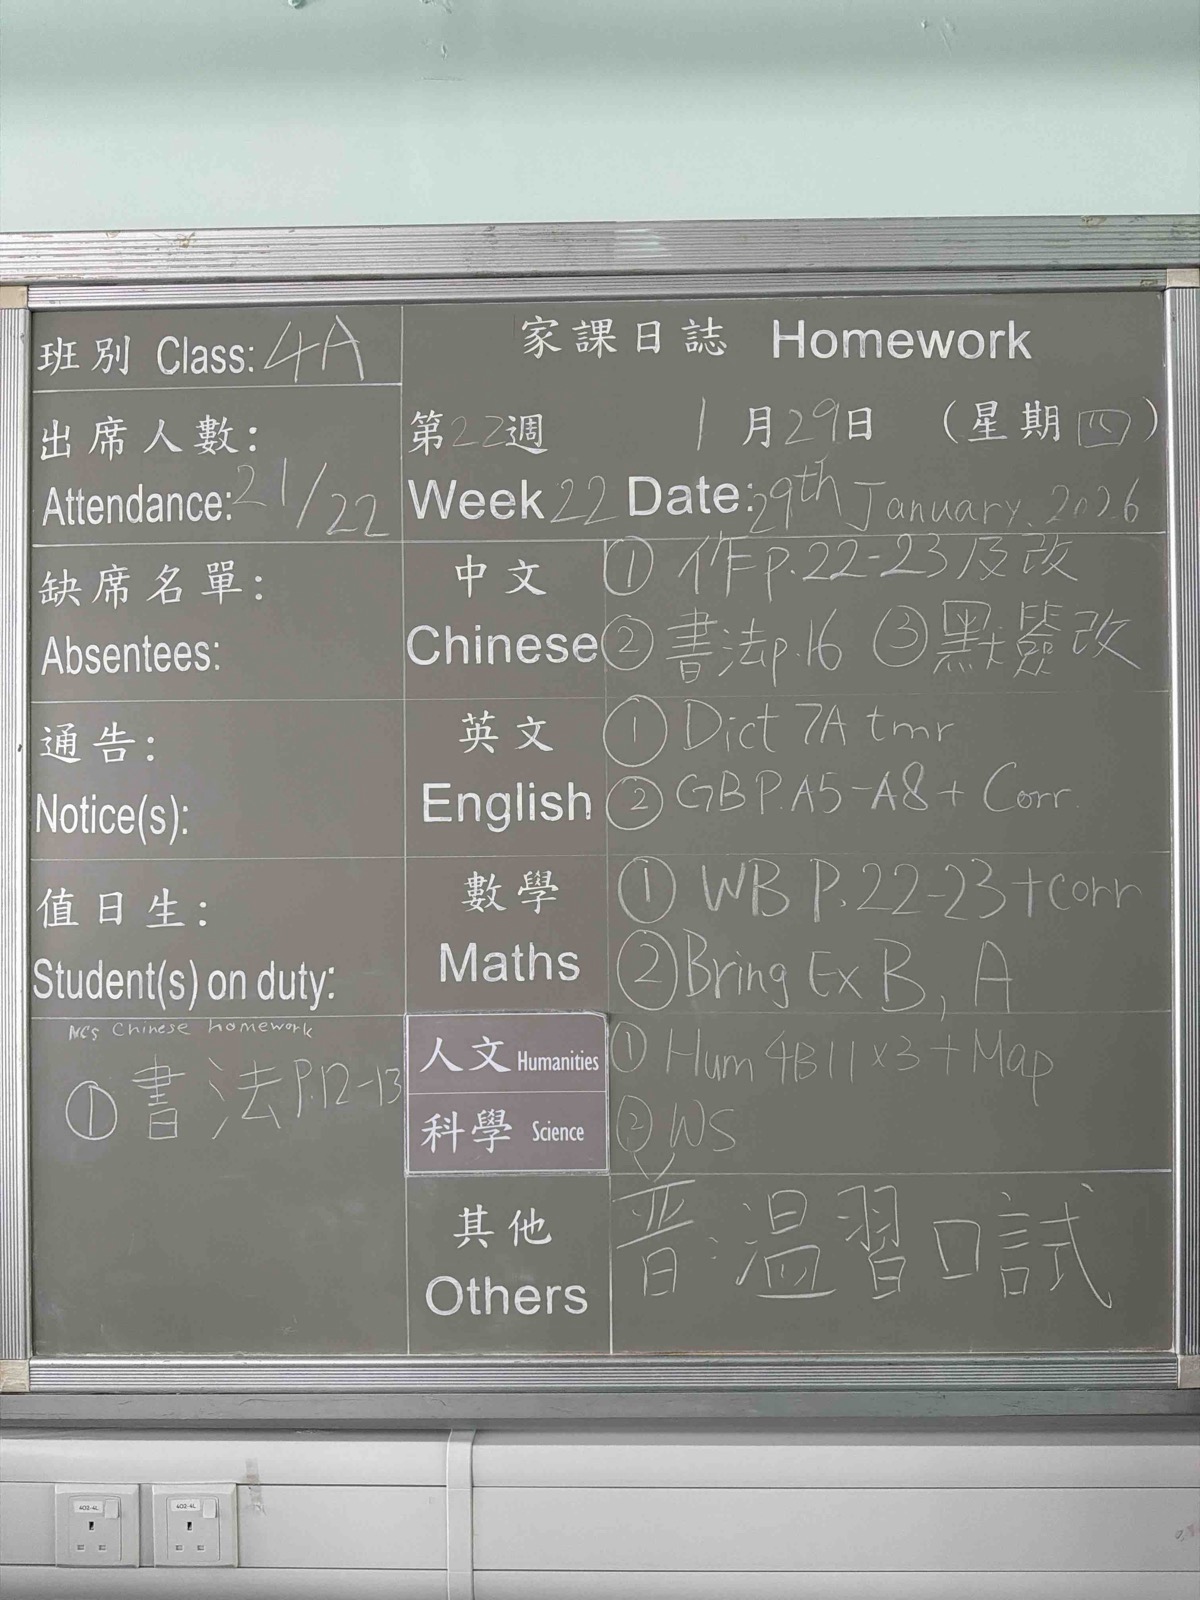 班別 Class: 4A
家課日誌 Homework
出席人數:
Attendance: 21/22
第22週 1月29日 (星期四)
Week 22 Date: 29th January. 2026
缺席名單:
Absentees:
中文
Chinese
① 作p.22-23及改
② 書法p.16 ③默簽改
通告:
Notice(s):
英文
English
① Dict 7A tmr
② GB P.A5-A8 + Corr.
值日生:
Student(s) on duty:
數學
Maths
① WB P.22-23+corr
② Bring Ex B, A
NCS Chinese homework
① 書法P.12-13
人文 Humanities
① Hum 4B11 x3 + Map
科學 Science
② WS
其他
Others
普:溫習口試
402-4L
402-4L